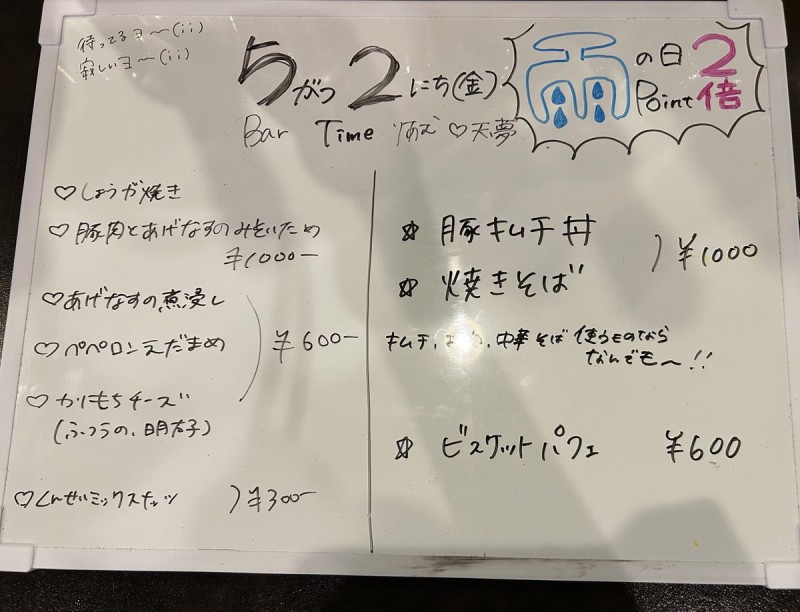 待ってるヨ〜(;;)
寂しいヨ〜(;;)
5がつ2にち(金)
雨の日 Point 2倍
Bar Time りあむ♡天夢
♡しょうが焼き
♡豚肉とあげなすのみそいため
¥1000-
♡あげなすの煮浸し
♡ペペロンえだまめ
¥600-
♡かりもちチーズ
(ふつうの、明太子)
♡くんせいミックスナッツ )¥300-
☆豚キムチ丼
☆焼きそば
)¥1000
キムチ, 中華そば 使うものなら
なんでも〜!!
☆ビスケットパフェ ¥600